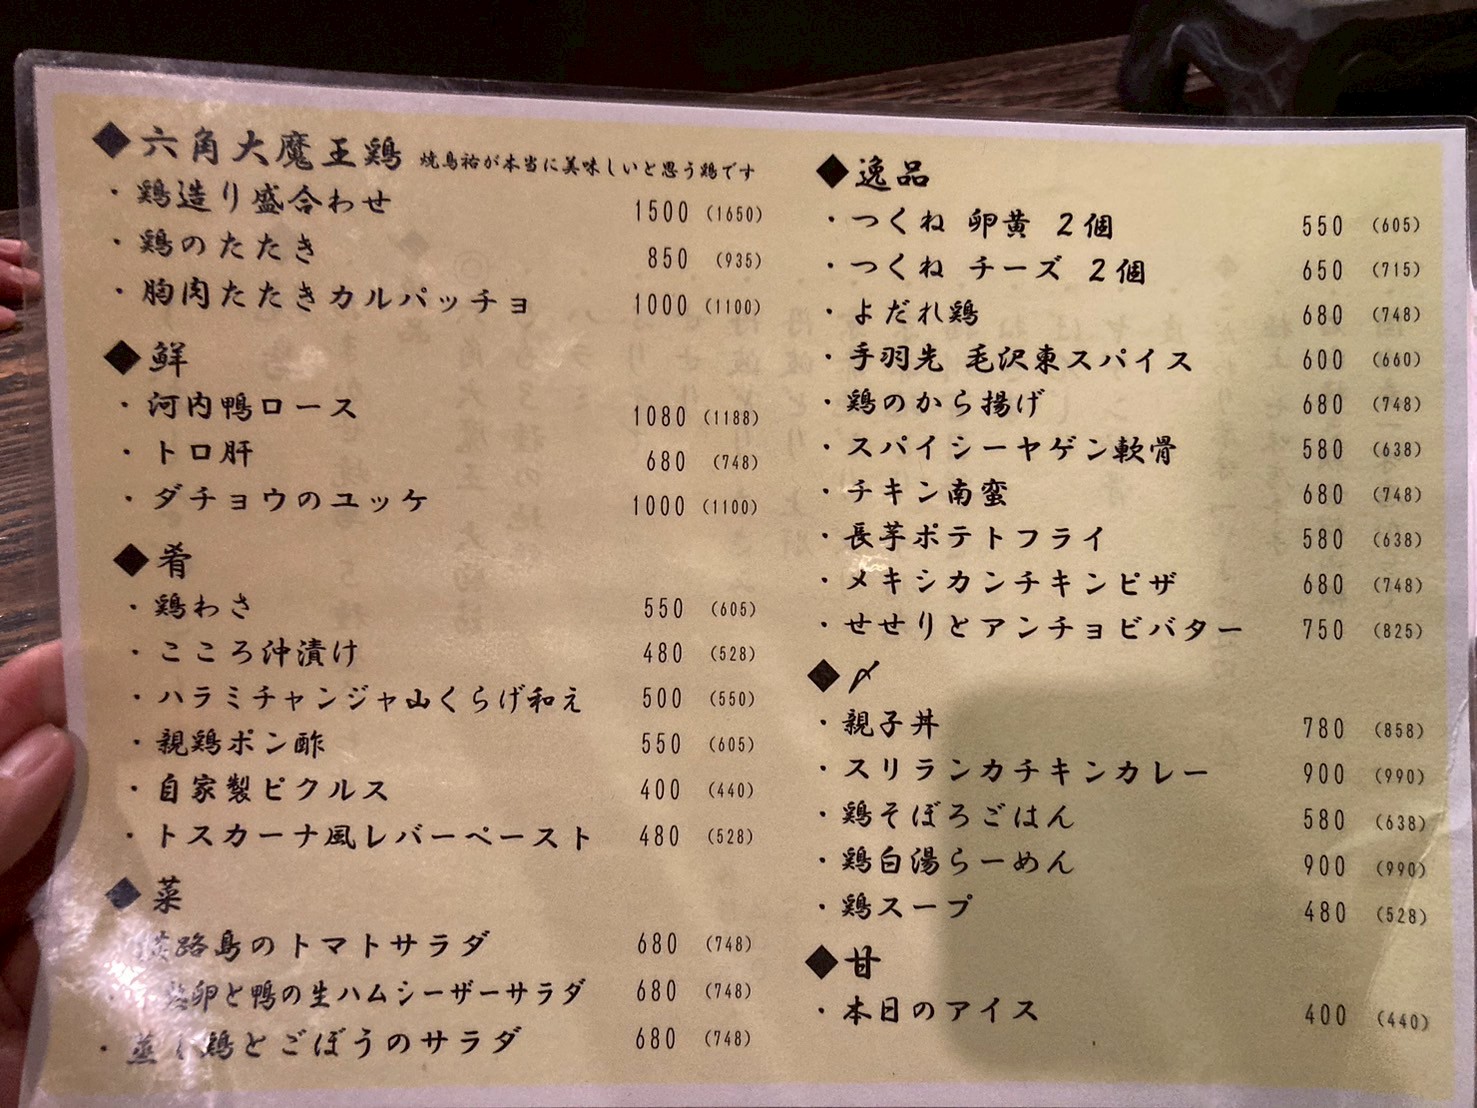 ◆六角大魔王鶏 焼鳥祐が本当に美味しいと思う鶏です
・鶏造り盛合わせ 1500 (1650)
・鶏のたたき 850 (935)
・胸肉たたきカルパッチョ 1000 (1100)
◆鮮
・河内鴨ロース 1080 (1188)
・トロ肝 680 (748)
・ダチョウのユッケ 1000 (1100)
◆肴
・鶏わさ 550 (605)
・こころ沖漬け 480 (528)
・ハラミチャンジャ山くらげ和え 500 (550)
・親鶏ポン酢 550 (605)
・自家製ピクルス 400 (440)
・トスカーナ風レバーペースト 480 (528)
◆菜
路島のトマトサラダ 680 (748)
卵と鴨の生ハムシーザーサラダ 680 (748)
・蒸し鶏とごぼうのサラダ 680 (748)
◆逸品
・つくね 卵黄 2個 550 (605)
・つくね チーズ 2個 650 (715)
・よだれ鶏 680 (748)
・手羽先 毛沢東スパイス 600 (660)
・鶏のから揚げ 680 (748)
・スパイシーヤゲン軟骨 580 (638)
・チキン南蛮 680 (748)
・長芋ポテトフライ 580 (638)
・メキシカンチキンピザ 680 (748)
・せせりとアンチョビバター 750 (825)
◆〆
・親子丼 780 (858)
・スリランカチキンカレー 900 (990)
・鶏そぼろごはん 580 (638)
・鶏白湯らーめん 900 (990)
・鶏スープ 480 (528)
◆甘
・本日のアイス 400 (440)